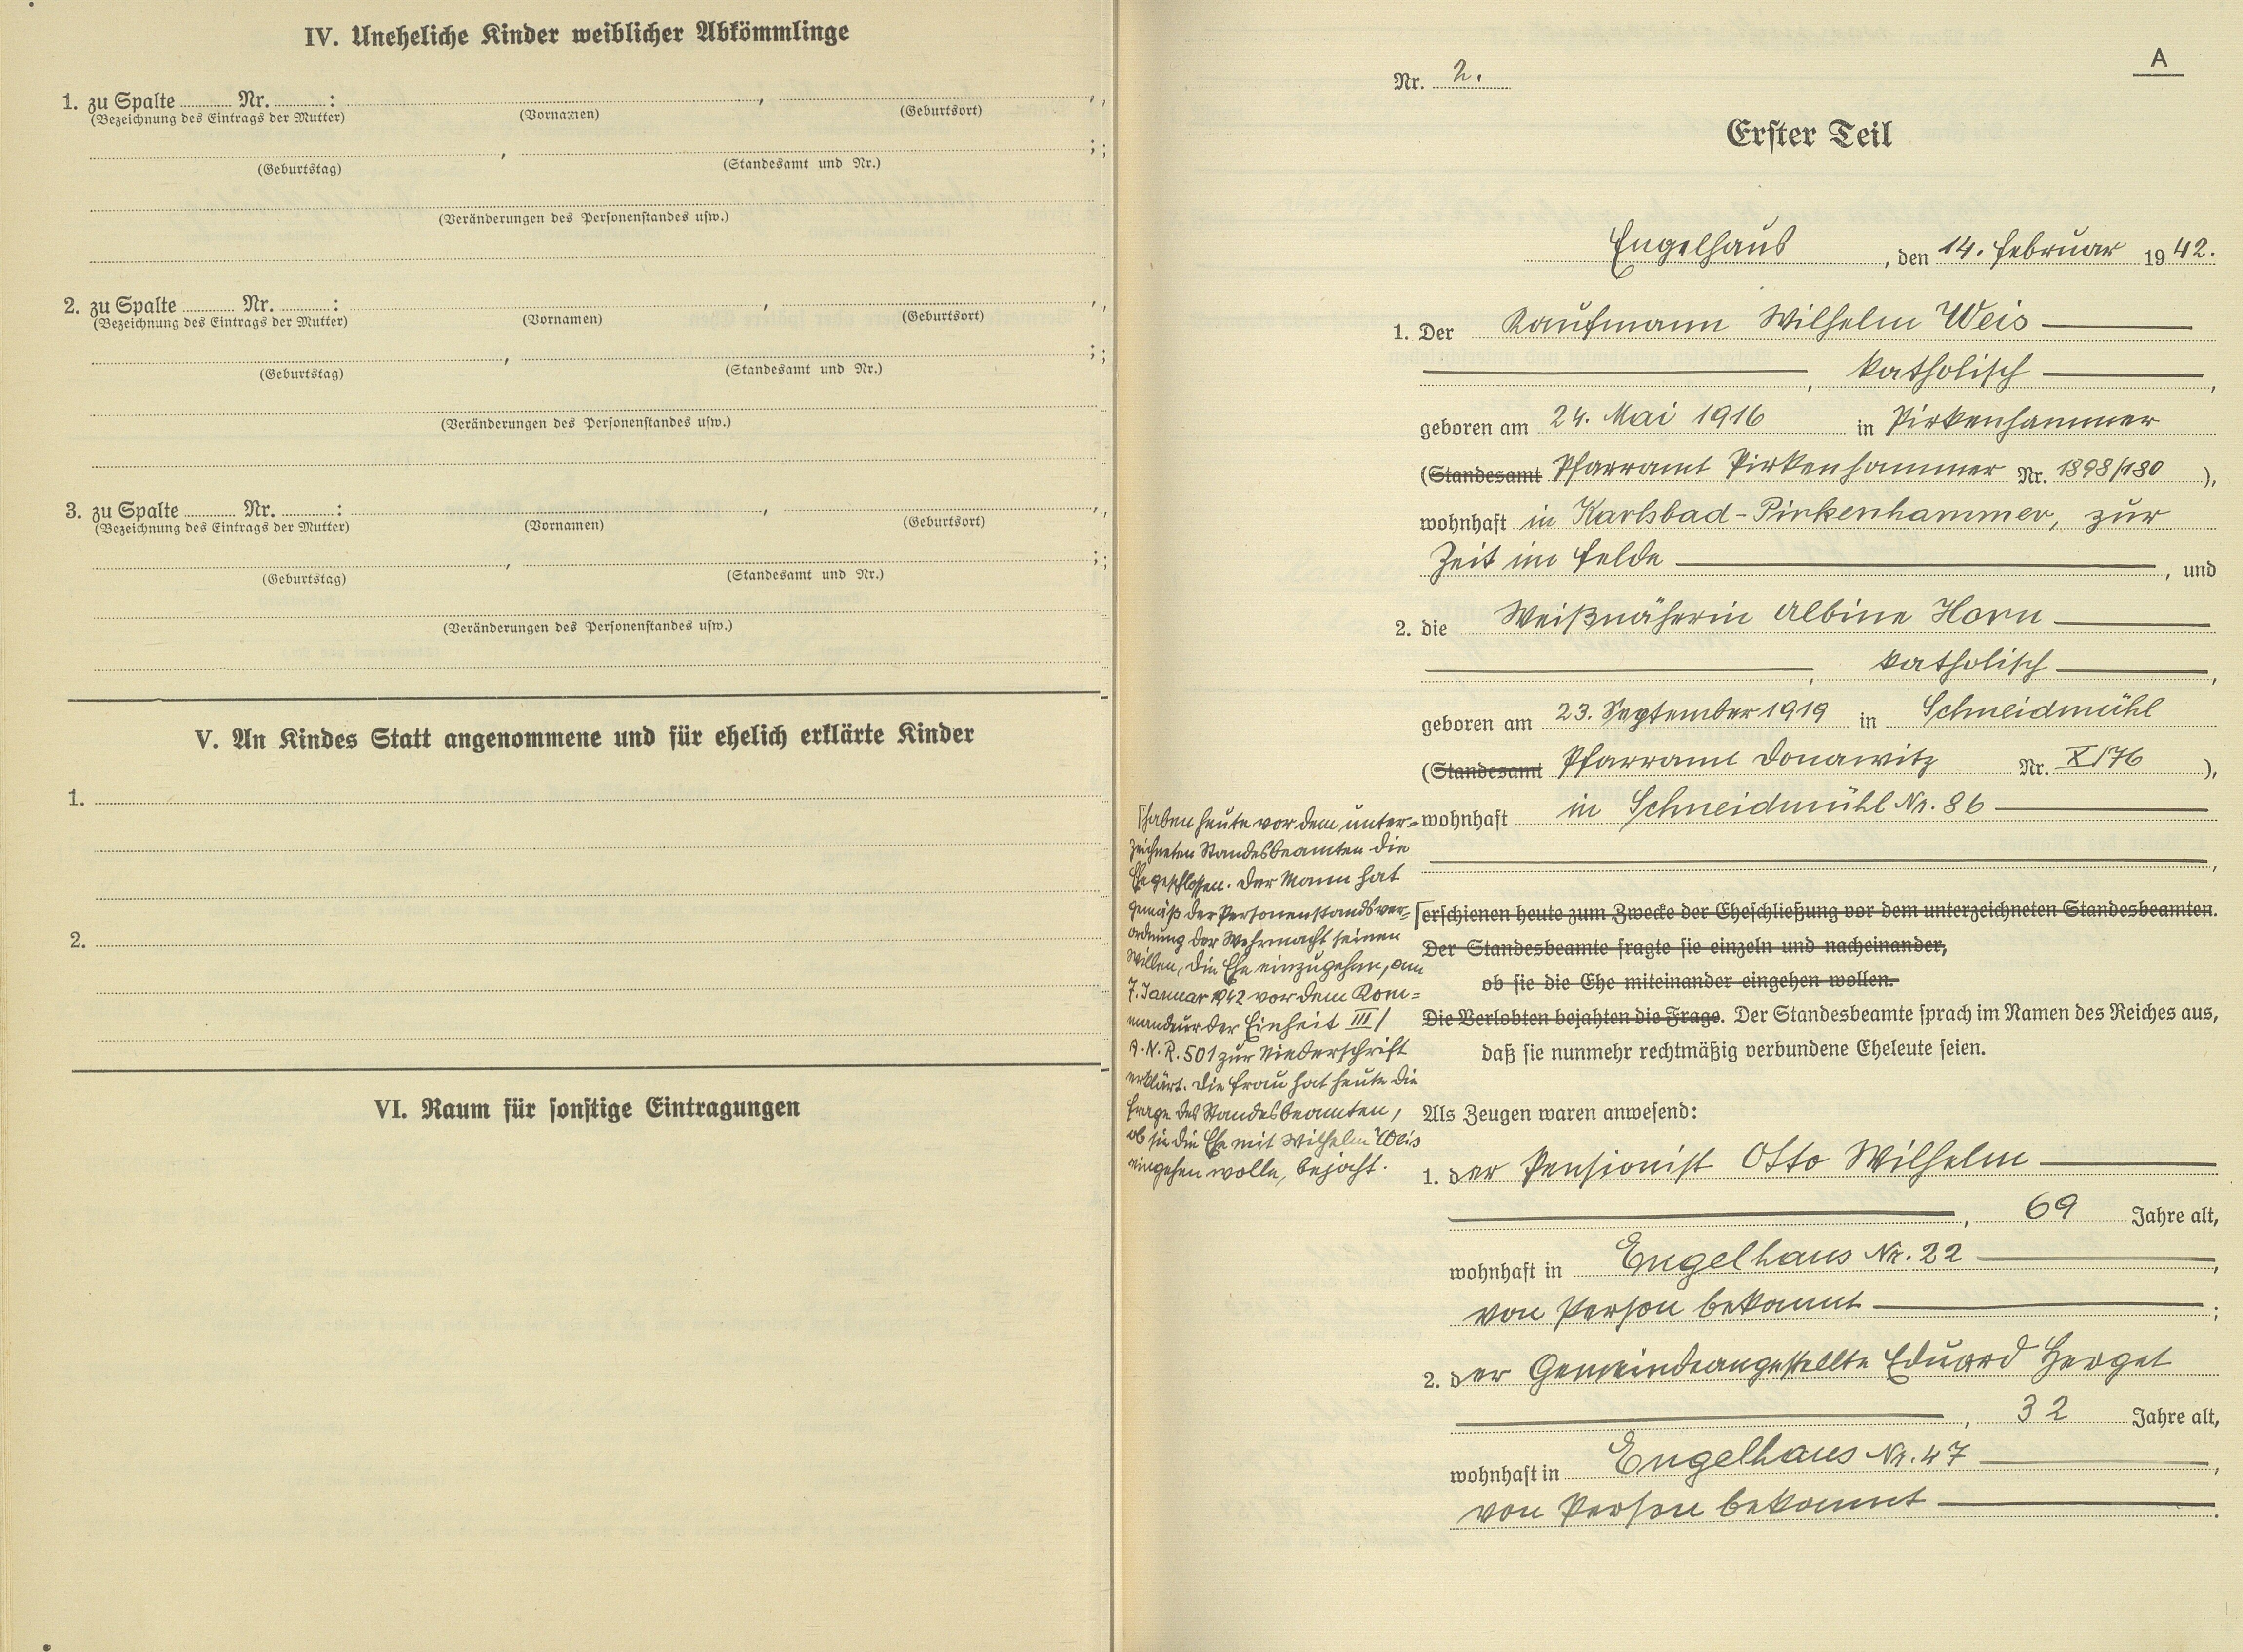 IV. Uneheliche Kinder weiblicher Abkömmlinge
1. zu Spalte ........ Nr. ........ : ........ , ........ ,
(Bezeichnung des Eintrags der Mutter) (Vornamen) (Geburtsort)
........ , ........ ;
(Geburtstag) (Standesamt und Nr.)
(Veränderungen des Personenstandes usw.)
2. zu Spalte ........ Nr. ........ : ........ , ........ ,
(Bezeichnung des Eintrags der Mutter) (Vornamen) (Geburtsort)
........ , ........ ;
(Geburtstag) (Standesamt und Nr.)
(Veränderungen des Personenstandes usw.)
3. zu Spalte ........ Nr. ........ : ........ , ........ ,
(Bezeichnung des Eintrags der Mutter) (Vornamen) (Geburtsort)
........ , ........ ;
(Geburtstag) (Standesamt und Nr.)
(Veränderungen des Personenstandes usw.)
V. An Kindes Statt angenommene und für ehelich erklärte Kinder
1.
2.
VI. Raum für sonstige Eintragungen
A
Nr. 2.
Erster Teil
Engelhaus, den 14. Februar 1942.
1. Der Kaufmann Wilhelm Weis
, katholisch ,
geboren am 24. Mai 1916 in Pirkenhammer
(Standesamt Pfarramt Pirkenhammer Nr. 1898/180 ),
wohnhaft in Karlsbad-Pirkenhammer, zur
Zeit im Felde , und
2. die Weißnäherin Albine Horn
, katholisch ,
geboren am 23. September 1919 in Schneidmühl
(Standesamt Pfarramt Donawitz Nr. X/176 ),
wohnhaft in Schneidmühl Nr. 86
,
[erschienen heute zum Zwecke der Eheschließung vor dem unterzeichneten Standesbeamten.
Der Standesbeamte fragte sie einzeln und nacheinander,
ob sie die Ehe miteinander eingehen wollen.
Die Verlobten bejahten die Frage. Der Standesbeamte sprach im Namen des Reiches aus,
daß sie nunmehr rechtmäßig verbundene Eheleute seien.
[haben heute vor dem unter=
zeichneten Standesbeamten die
Ehe geschlossen. Der Mann hat
gemäß der Personenstandsver=
ordnung der Wehrmacht seinen
Willen, die Ehe einzugehen, am
7. Januar 1942 vor dem Kom=
mandeur der Einheit III/
A.N.R. 501 zur Niederschrift
erklärt. Die Frau hat heute die
Frage des Standesbeamten,
ob sie die Ehe mit Wilhelm Weis
eingehen wolle, bejaht.
Als Zeugen waren anwesend:
1. der Pensionist Otto Wilhelm
, 69 Jahre alt,
wohnhaft in Engelhaus Nr. 22 ,
von Person bekannt ;
2. der Gemeindeangestellte Eduard Herget
, 32 Jahre alt,
wohnhaft in Engelhaus Nr. 47 ,
von Person bekannt .